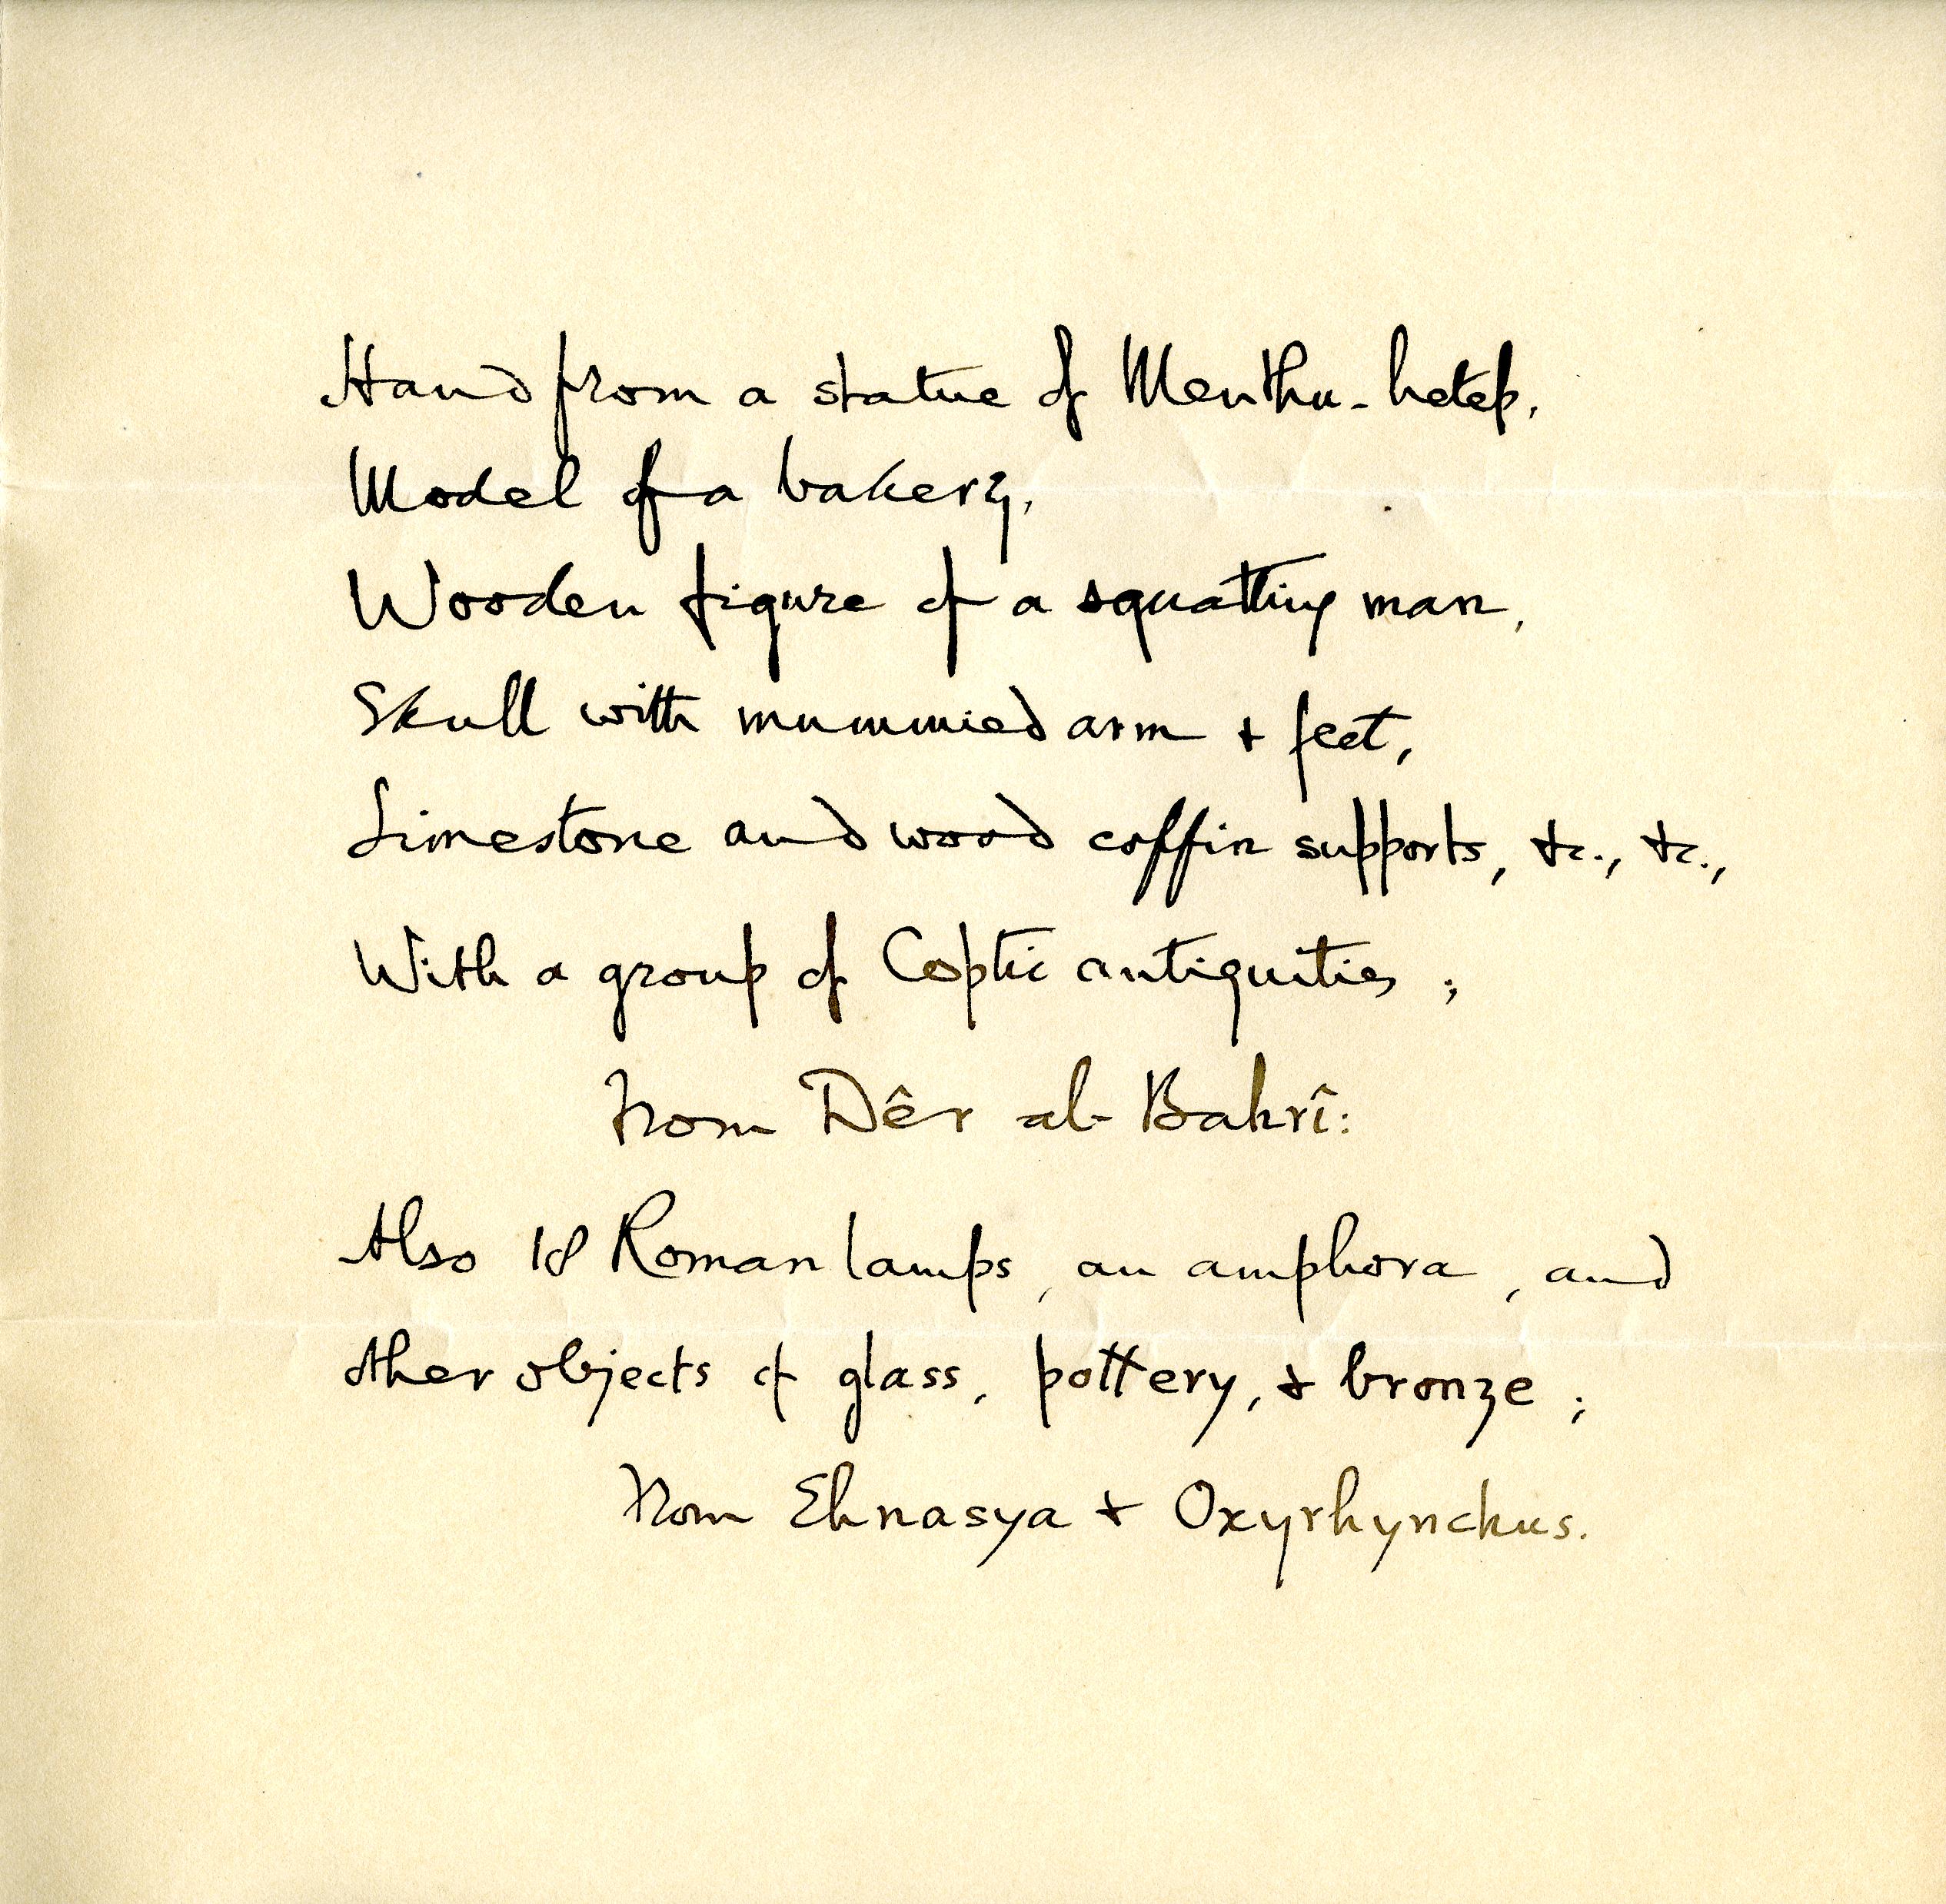 Hand from a statue of Menthu-hetep,
Model of a bakery,
Wooden figure of a squatting man,
Skull with mummied arm & feet,
Limestone and wood coffin supports, &c., &c.,
With a group of Coptic antiquities;
from Dêr al-Bahrî:
Also 18 Roman lamps, an amphora, and
other objects of glass, pottery, & bronze;
from Ehnasya & Oxyrhynchus.